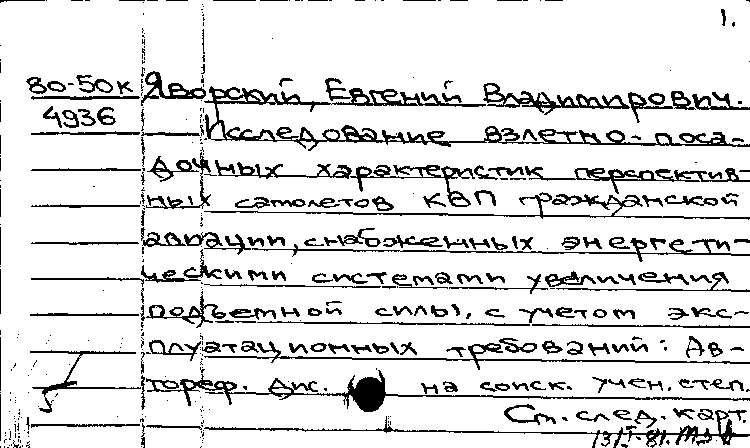 1.
80-50к Яворский, Евгений Владимирович.
4936 Исследование взлетно-поса-
дочных характеристик перспектив-
ных самолетов КВП гражданской
авиации, снабженных энергети-
ческими системами увеличения
подъемной силы, с учетом экс-
плуатационных требований: Ав-
тореф. дис. на соиск. учен. степ.
См. след. карт.